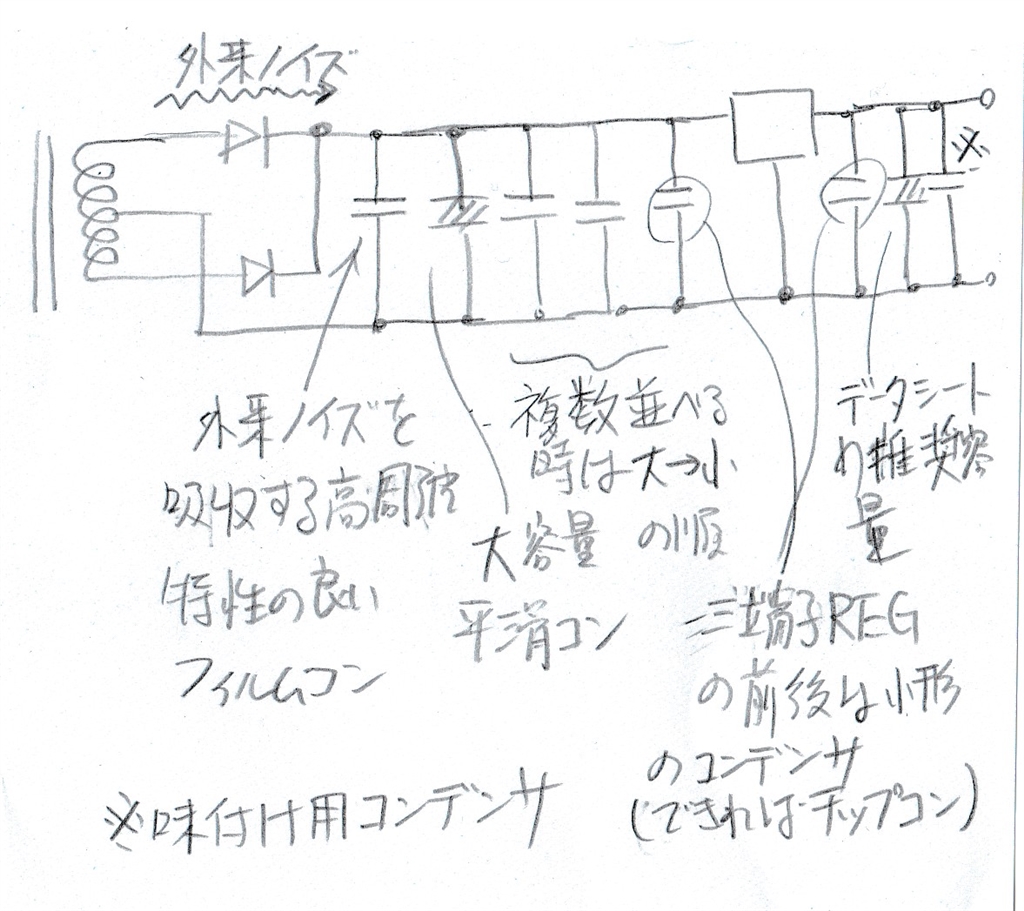 外来ノイズ
※
外来ノイズを
吸収する高周波
特性の良い
フィルムコン
大容量
平滑コン
複数並べる
時は大→小
の順
三端子REG
の前後は小形
のコンデンサ
(できればチップコン)
データシート
の推奨容
量
※味付け用コンデンサ